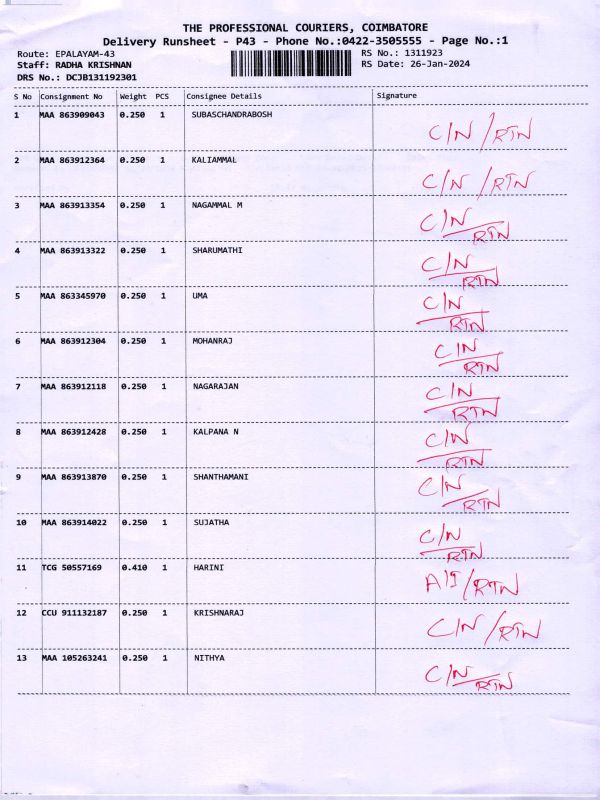 THE PROFESSIONAL COURIERS, COIMBATORE
Delivery Runsheet - P43 - Phone No.:0422-3505555 - Page No.:1
Route: EPALAYAM-43 RS No.: 1311923
Staff: RADHA KRISHNAN RS Date: 26-Jan-2024
DRS No.: DCJB131192301
S No Consignment No Weight PCS Consignee Details Signature
1 MAA 863909043 0.250 1 SUBASCHANDRABOSH C/N /RTN
2 MAA 863912364 0.250 1 KALIAMMAL C/N /RTN
3 MAA 863913354 0.250 1 NAGAMMAL M C/N
RTN
4 MAA 863913322 0.250 1 SHARUMATHI C/N
RTN
5 MAA 863345970 0.250 1 UMA C/N
RTN
6 MAA 863912304 0.250 1 MOHANRAJ C/N
RTN
7 MAA 863912118 0.250 1 NAGARAJAN C/N
RTN
8 MAA 863912428 0.250 1 KALPANA N C/N
RTN
9 MAA 863913870 0.250 1 SHANTHAMANI C/N
RTN
10 MAA 863914022 0.250 1 SUJATHA C/N
RTN
11 TCG 50557169 0.410 1 HARINI /RTN
12 CCU 911132187 0.250 1 KRISHNARAJ C/N /RTN
13 MAA 105263241 0.250 1 NITHYA C/N
RTN